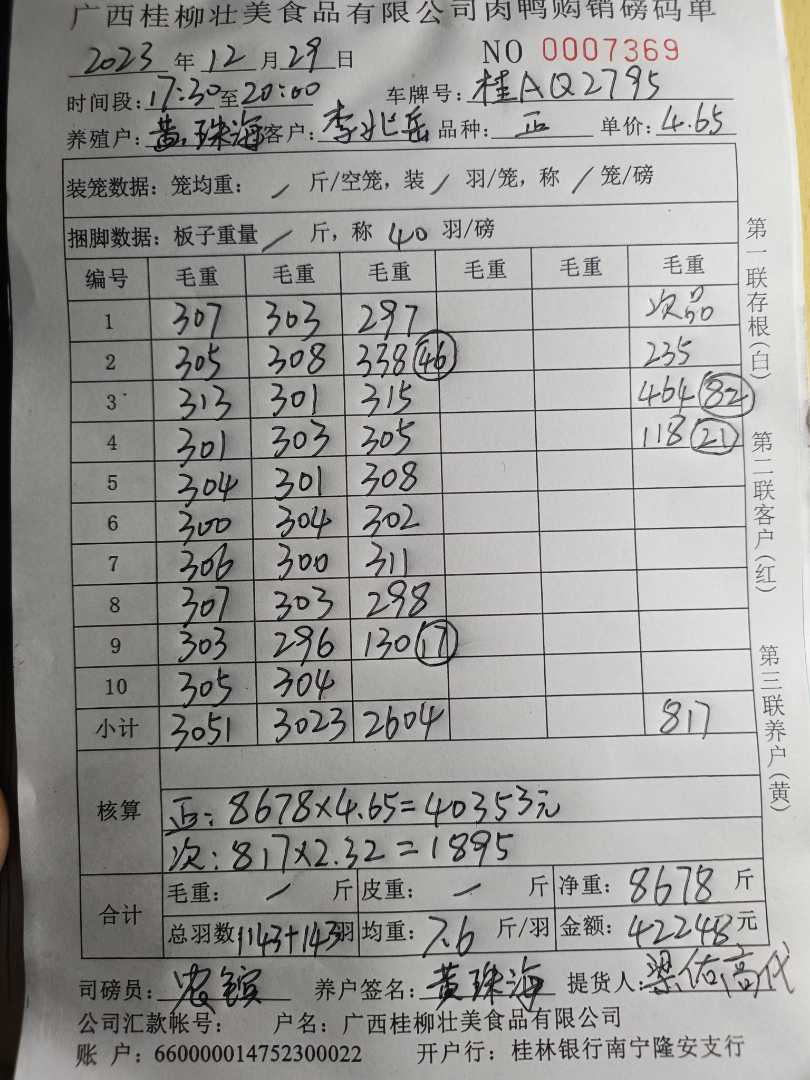 广西桂柳壮美食品有限公司肉鸭购销磅码单
2023 年 12 月 29 日 NO 0007369
时间段: 17:30 至 20:00 车牌号: 桂AQ2795
养殖户: 黄珠海 客户: 李兆岳 品种: 正 单价: 4.65
装笼数据: 笼均重: / 斤/空笼, 装 / 羽/笼, 称 / 笼/磅
捆脚数据: 板子重量 / 斤, 称 40 羽/磅
编号 毛重 毛重 毛重 毛重 毛重 毛重
1 307 303 297 次品
2 305 308 338 46 235
3 313 301 315 464 82
4 301 303 305 118 21
5 304 301 308
6 300 304 302
7 306 300 311
8 307 303 298
9 303 296 130 17
10 305 304
小计 3051 3023 2604 817
核算
正: 8678×4.65=40353元
次: 817×2.32=1895
合计
毛重: / 斤 皮重: / 斤 净重: 8678 斤
总羽数 1143+143 羽 均重: 7.6 斤/羽 金额: 42248 元
司磅员: 农 养户签名: 黄珠海 提货人: 梁佑高代
公司汇款帐号: 户名: 广西桂柳壮美食品有限公司
账 户: 660000014752300022 开户行: 桂林银行南宁隆安支行
第一联存根(白)
第二联客户(红)
第三联养户(黄)